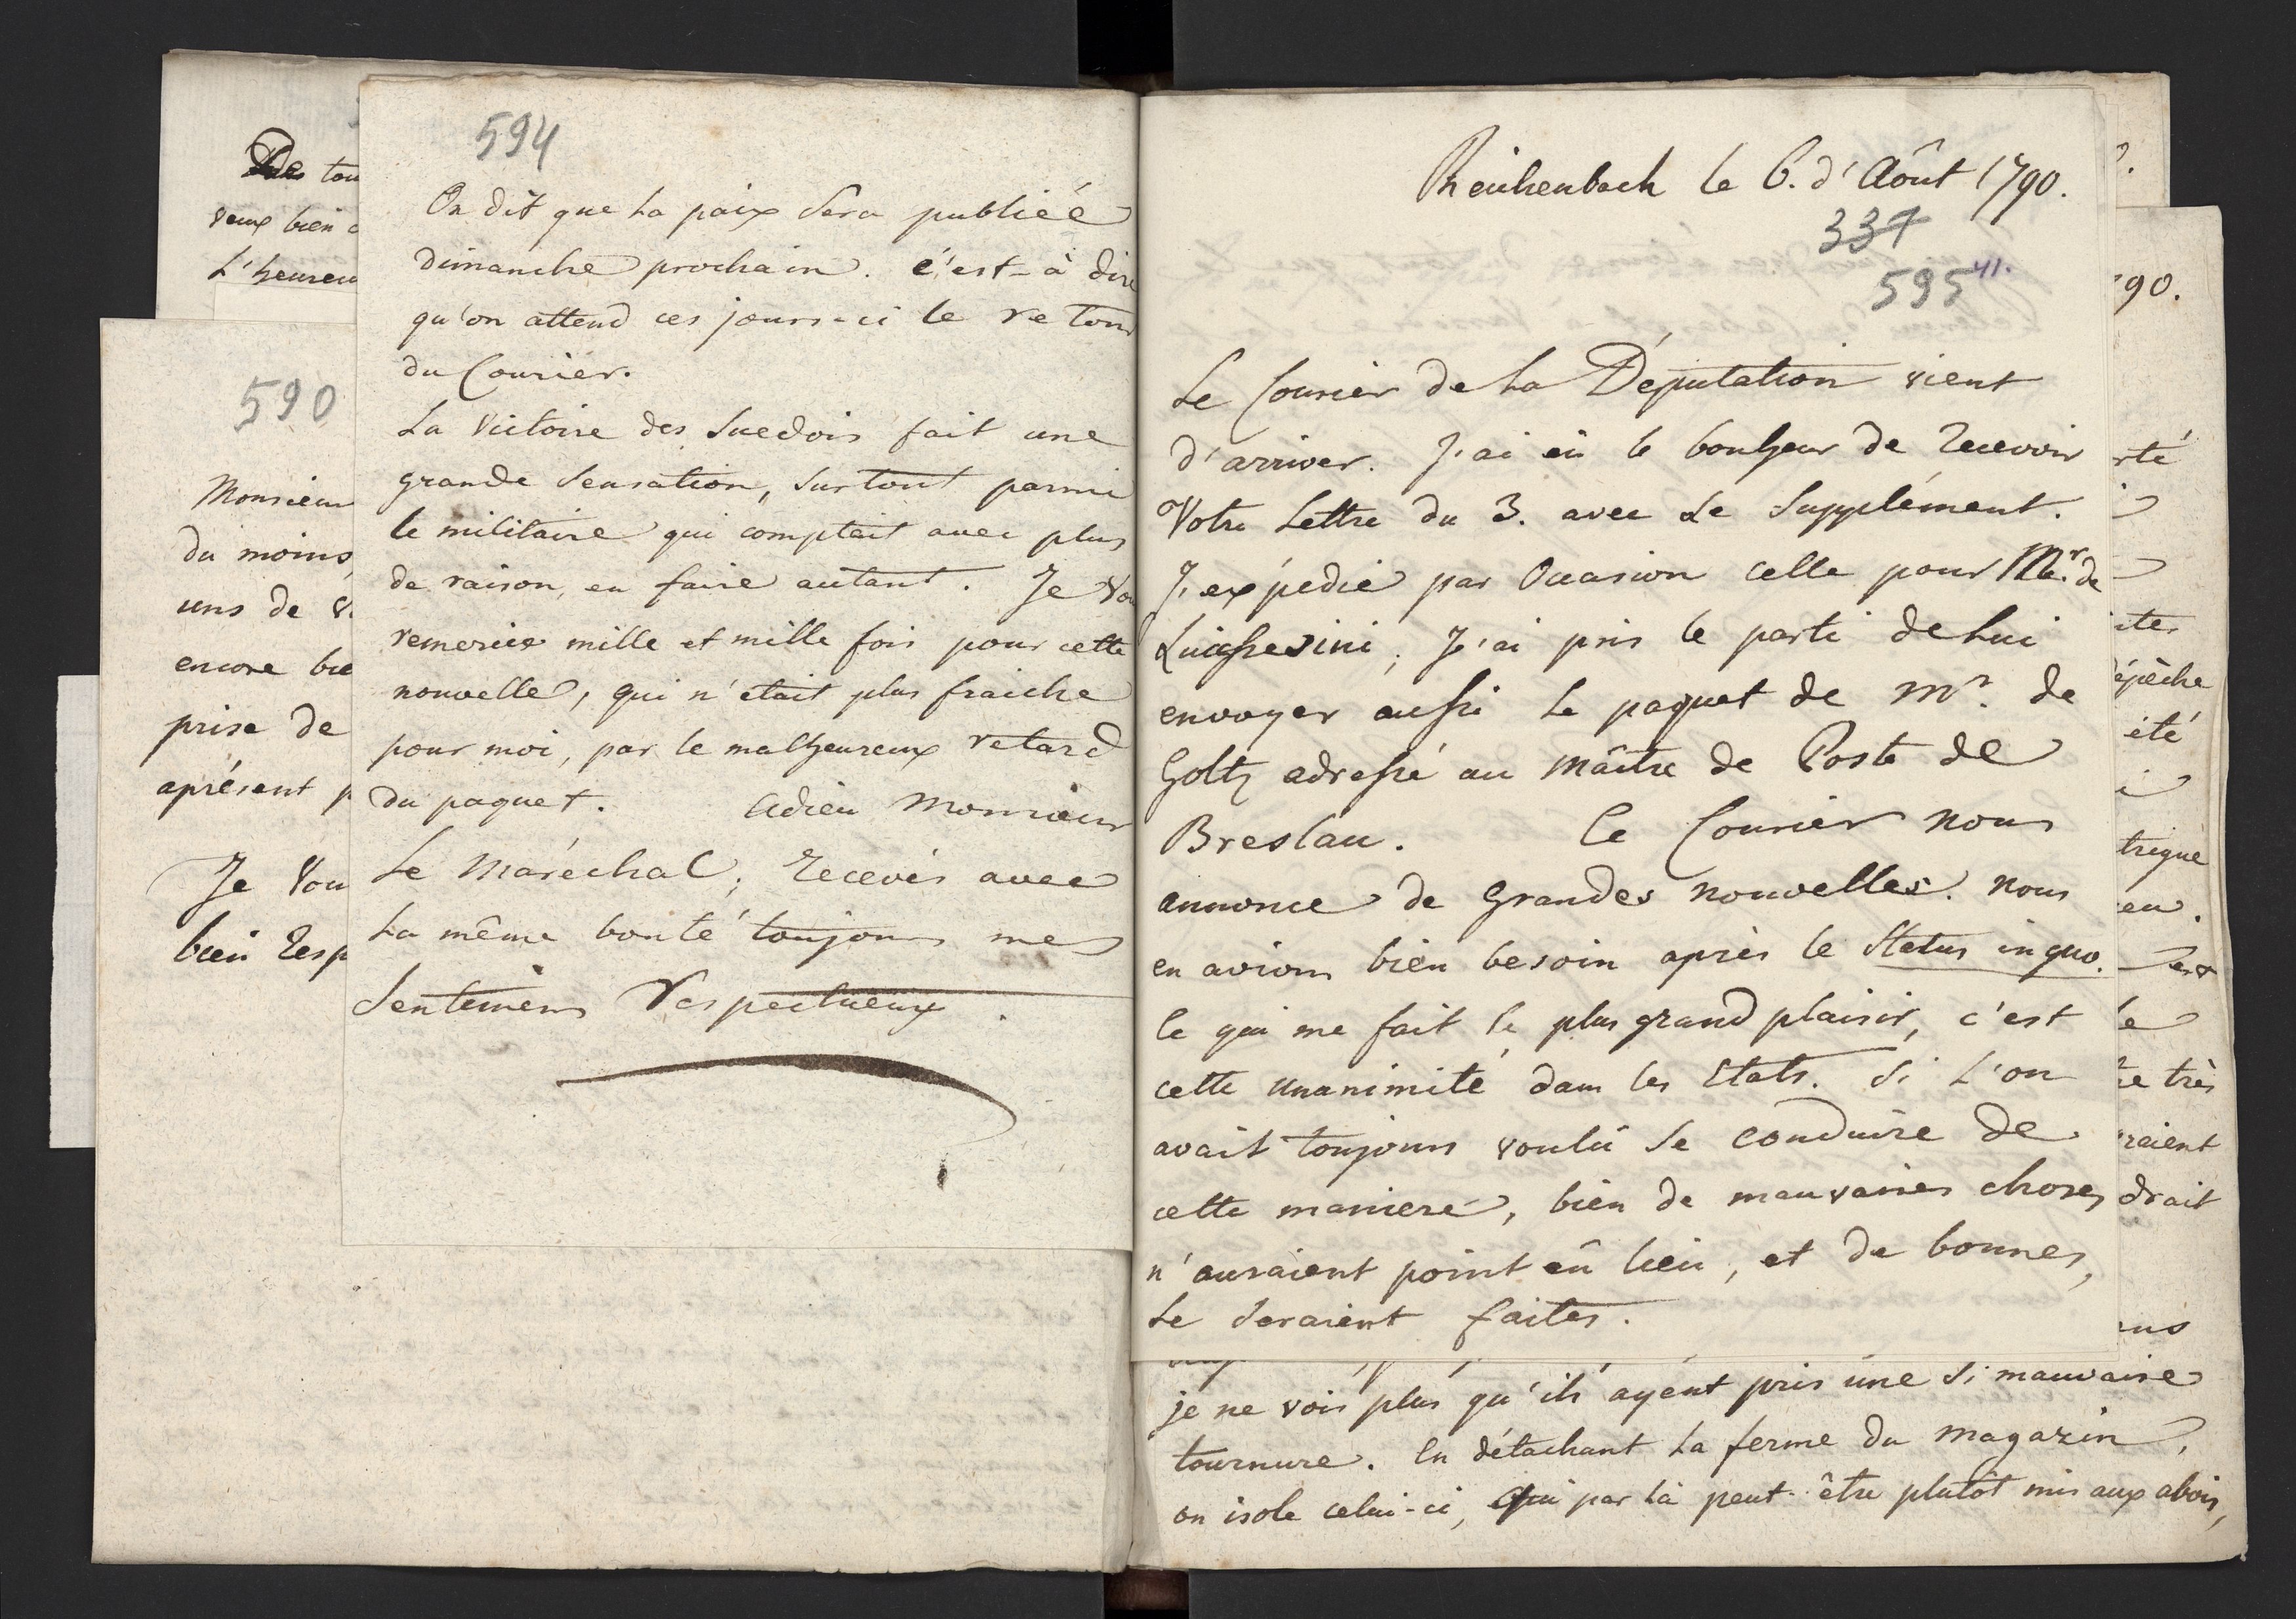 Des tou
veux bien
L'heureu
590
Monsieur
du moins,
uns de v.
encore bie
prise de
aprésent p
Je Vou
bien Resp
594
On dit que La paix Sera publiée
dimanche prochain. c'est-à dire
qu'on attend ces jours-ci le retour
du Courier.
La Victoire des Suedois fait une
grande Sensation, Surtout parmi
le militaire qui comptait avec plus
de raison, en faire autant. Je Vou
remercie mille et mille fois pour cette
nouvelle, qui n'etait plus fraiche
pour moi, par le malheureux retard
du paquet. Adieu Monsieur
Le Maréchal; Recevés avec
La même bonté toujours mes
Sentimens Respectueux.
Reichenbach le 6. d'Aôut 1790.
337
595 41.
Le Courier de La Députation vient
d'arriver. J'ai eû le bonheur de Recevoir
Votre Lettre du 3. avec Le Supplément.
J'expédie par Occasion celle pour Mr. de
Luchesini; J'ai pris le parti de Lui
envoyer aussi Le paquet de Mr. de
Goltz adressé au Maître de Poste de
Breslau. Ce Courier nous
annonce de Grandes nouvelles. Nous
en avions bien besoin après le Status in quo.
Ce qui me fait le plus grand plaisir, c'est
cette unanimité dans les Etats. Si L'on
avait toujours voulû Se conduire de
cette maniere, bien de mauvaises choses
n'auraient point eû lieu, et de bonnes,
Se Seraient faites.
je ne vois plus qu'ils ayent pris une Si mauvaise
tournure. En détachant La ferme du Magazin,
on isole celui-ci, qui par Là peut-être plutôt mis aux abois,
90.
rté
épêche
été
trique
eu.
le
re très
raient
drait
ens